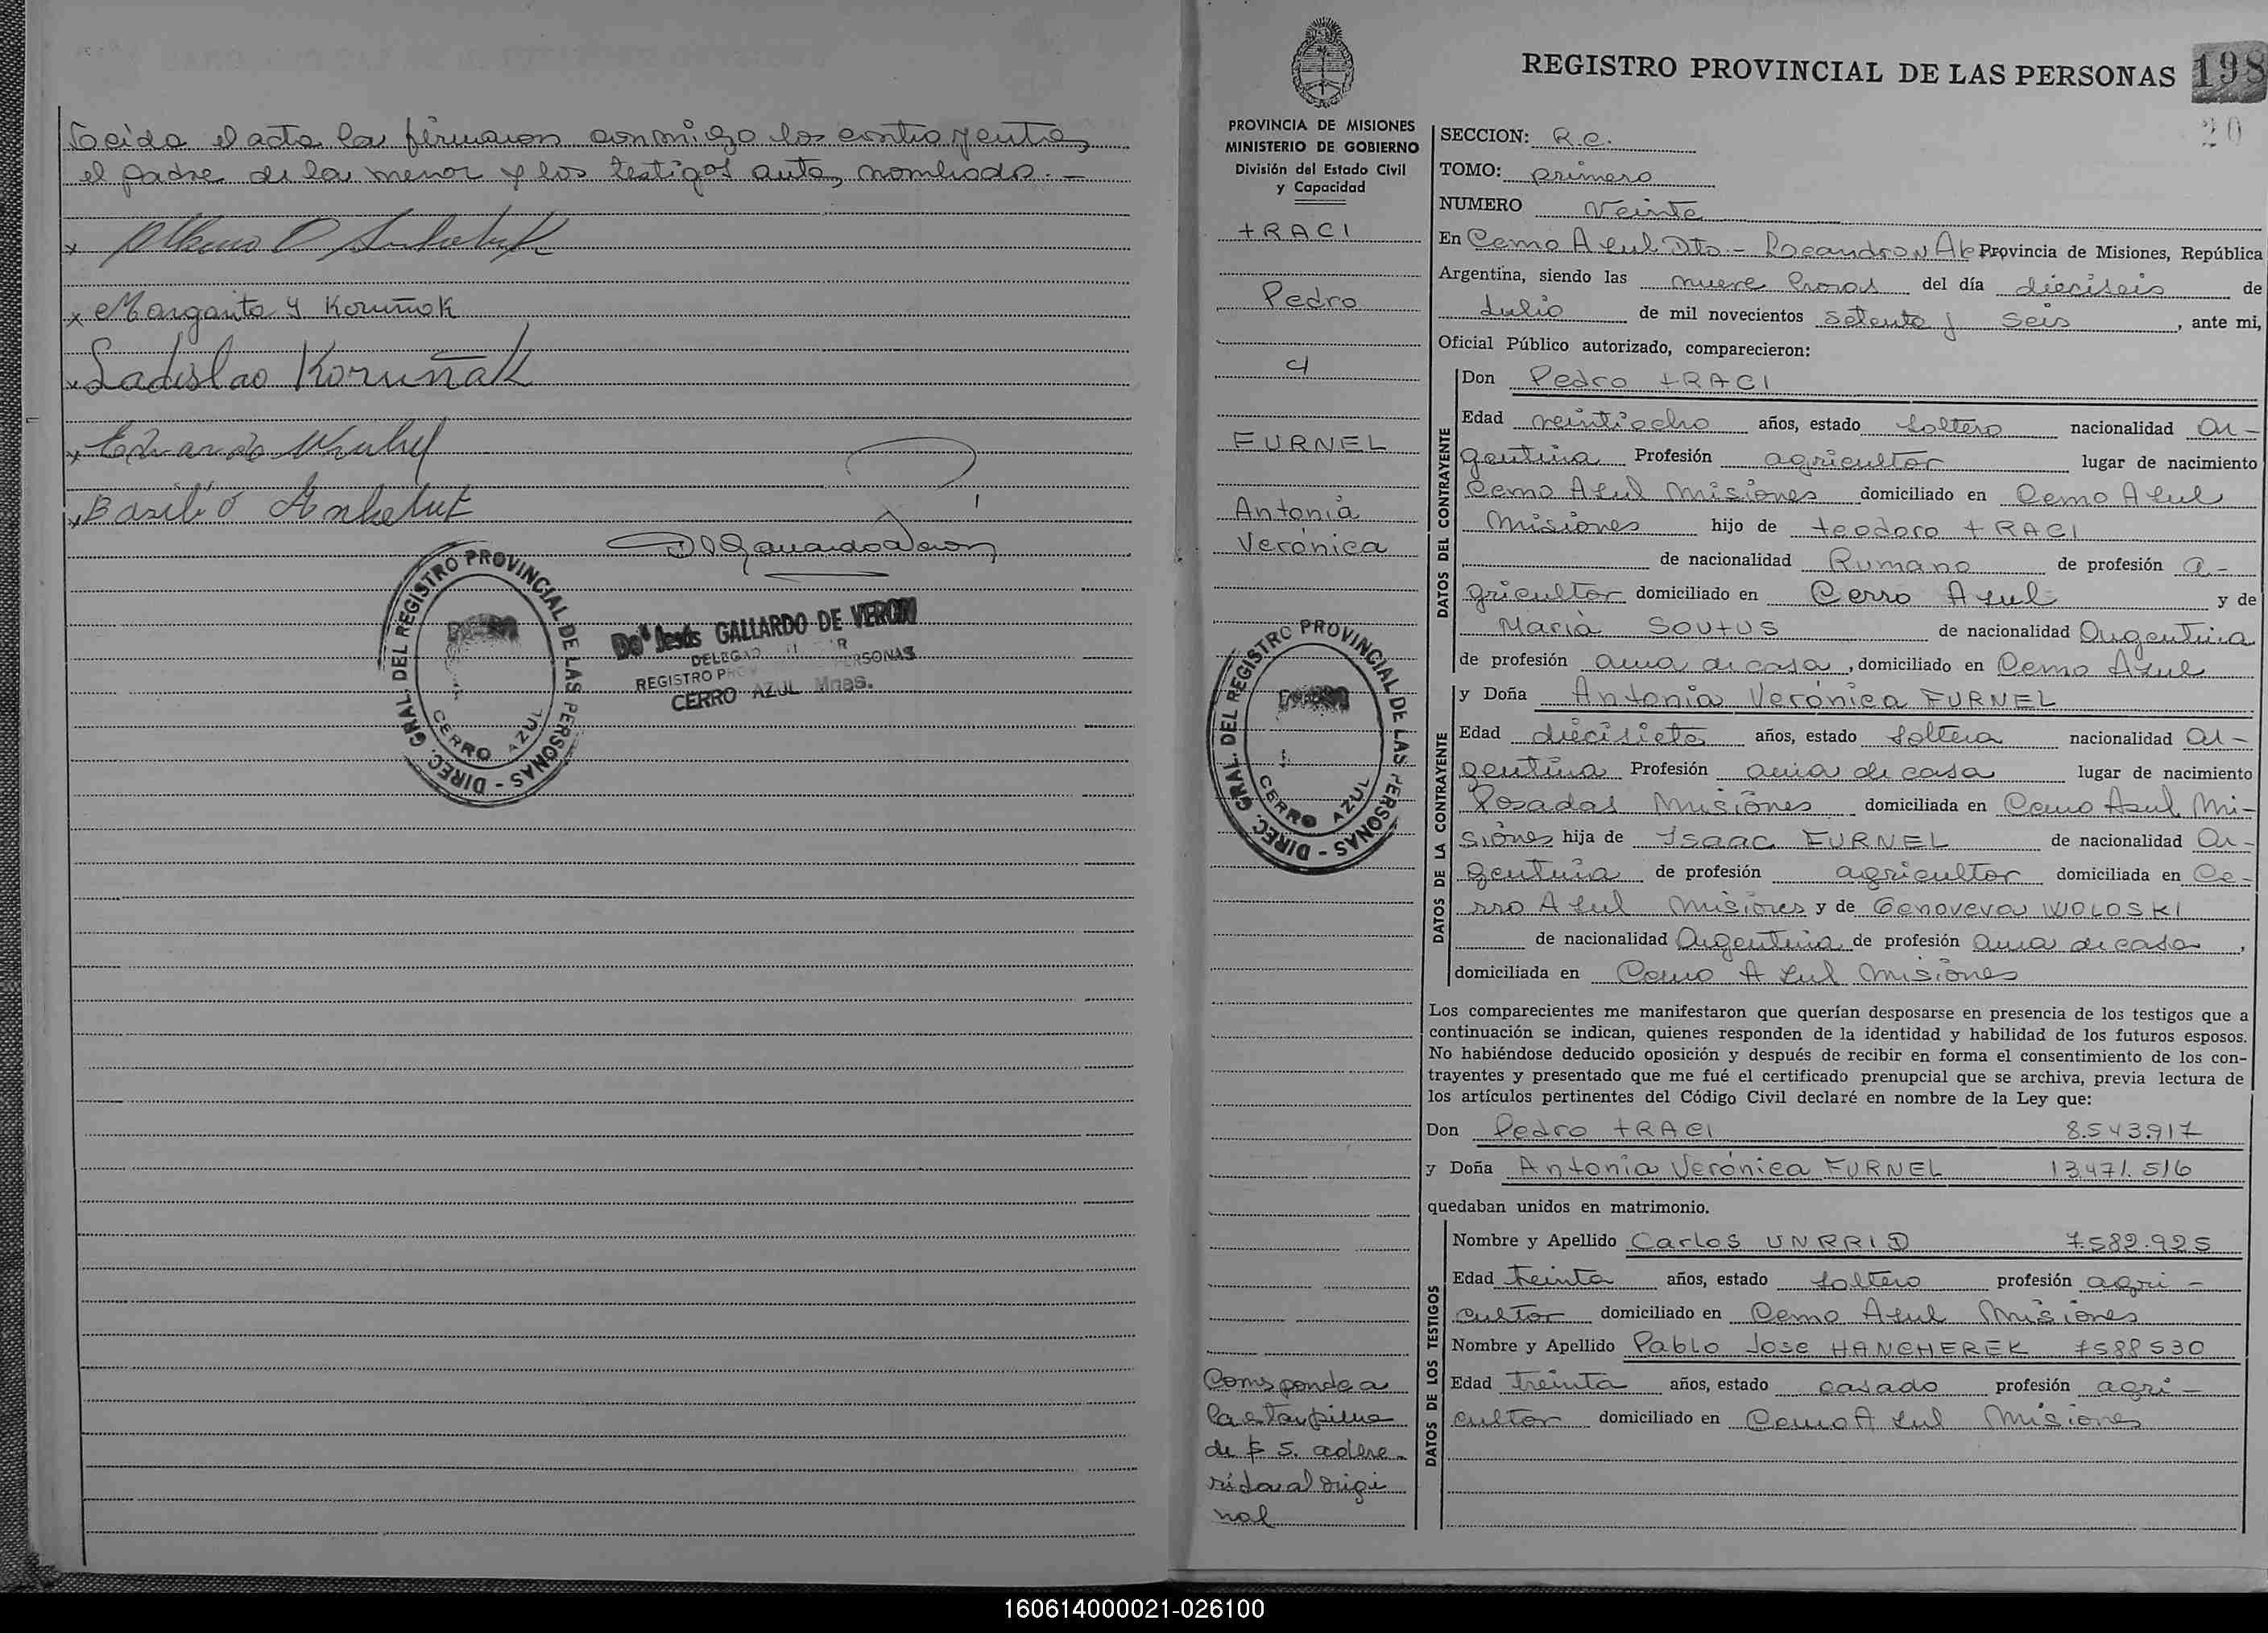 Leida el acta la firmaron conmigo los contrayentes,
el padre de la menor y los testigos antes nombrado. -
x
x Margarita Y Koruñak
x Ladislao Koruñak
x Eduardo
x Basilio Ankelut
DIREC. GRAL. DEL REGISTRO PROVINCIAL DE LAS PERSONAS -
CERRO AZUL
Doª Jesús GALLARDO DE VERON
REGISTRO PERSONAS
CERRO AZUL Mnes.
REGISTRO PROVINCIAL DE LAS PERSONAS 198
20
PROVINCIA DE MISIONES
MINISTERIO DE GOBIERNO
División del Estado Civil
y Capacidad
tRACI
Pedro
y
FURNEL
Antonia
Verónica
DIREC. GRAL. DEL REGISTRO PROVINCIAL DE LAS PERSONAS -
CERRO AZUL
Corresponde a
la estampilla
de $ 5. adhe-
rida al origi
nal
SECCION: R.C.
TOMO: primero
NUMERO Veinte
En Cerro Azul Dto - Leandro N Al Provincia de Misiones, República
Argentina, siendo las nueve horas del día dieciseis de
Julio de mil novecientos setenta y seis, ante mi,
Oficial Público autorizado, comparecieron:
DATOS DEL CONTRAYENTE
Don Pedro tRACI
Edad veintiocho años, estado soltero nacionalidad Ar-
gentina Profesión agricultor lugar de nacimiento
Cerro Azul Misiones domiciliado en Cerro Azul
Misiones hijo de teodoro tRACI
de nacionalidad Rumano de profesión a-
gricultor domiciliado en Cerro Azul y de
María SOUtUS de nacionalidad Argentina
de profesión ama de casa, domiciliado en Cerro Azul
DATOS DE LA CONTRAYENTE
y Doña Antonia Verónica FURNEL
Edad diecisiete años, estado soltera nacionalidad Ar-
gentina Profesión ama de casa lugar de nacimiento
Posadas Misiones domiciliada en Cerro Azul Mi-
siones hija de Isaac FURNEL de nacionalidad Ar-
gentina de profesión agricultor domiciliada en Ce-
rro Azul Misiones y de Genoveva WOLOSKI
de nacionalidad Argentina de profesión ama de casa,
domiciliada en Cerro Azul Misiones
Los comparecientes me manifestaron que querían desposarse en presencia de los testigos que a
continuación se indican, quienes responden de la identidad y habilidad de los futuros esposos.
No habiéndose deducido oposición y después de recibir en forma el consentimiento de los con-
trayentes y presentado que me fué el certificado prenupcial que se archiva, previa lectura de
los artículos pertinentes del Código Civil declaré en nombre de la Ley que:
Don Pedro tRACI 8.543.917
y Doña Antonia Verónica FURNEL 13.471.516
quedaban unidos en matrimonio.
DATOS DE LOS TESTIGOS
Nombre y Apellido Carlos UNRRID 7.582.925
Edad treinta años, estado soltero profesión agri-
cultor domiciliado en Cerro Azul Misiones
Nombre y Apellido Pablo Jose HANCHEREK 7588530
Edad treinta años, estado casado profesión agri-
cultor domiciliado en Cerro Azul Misiones
160614000021-026100